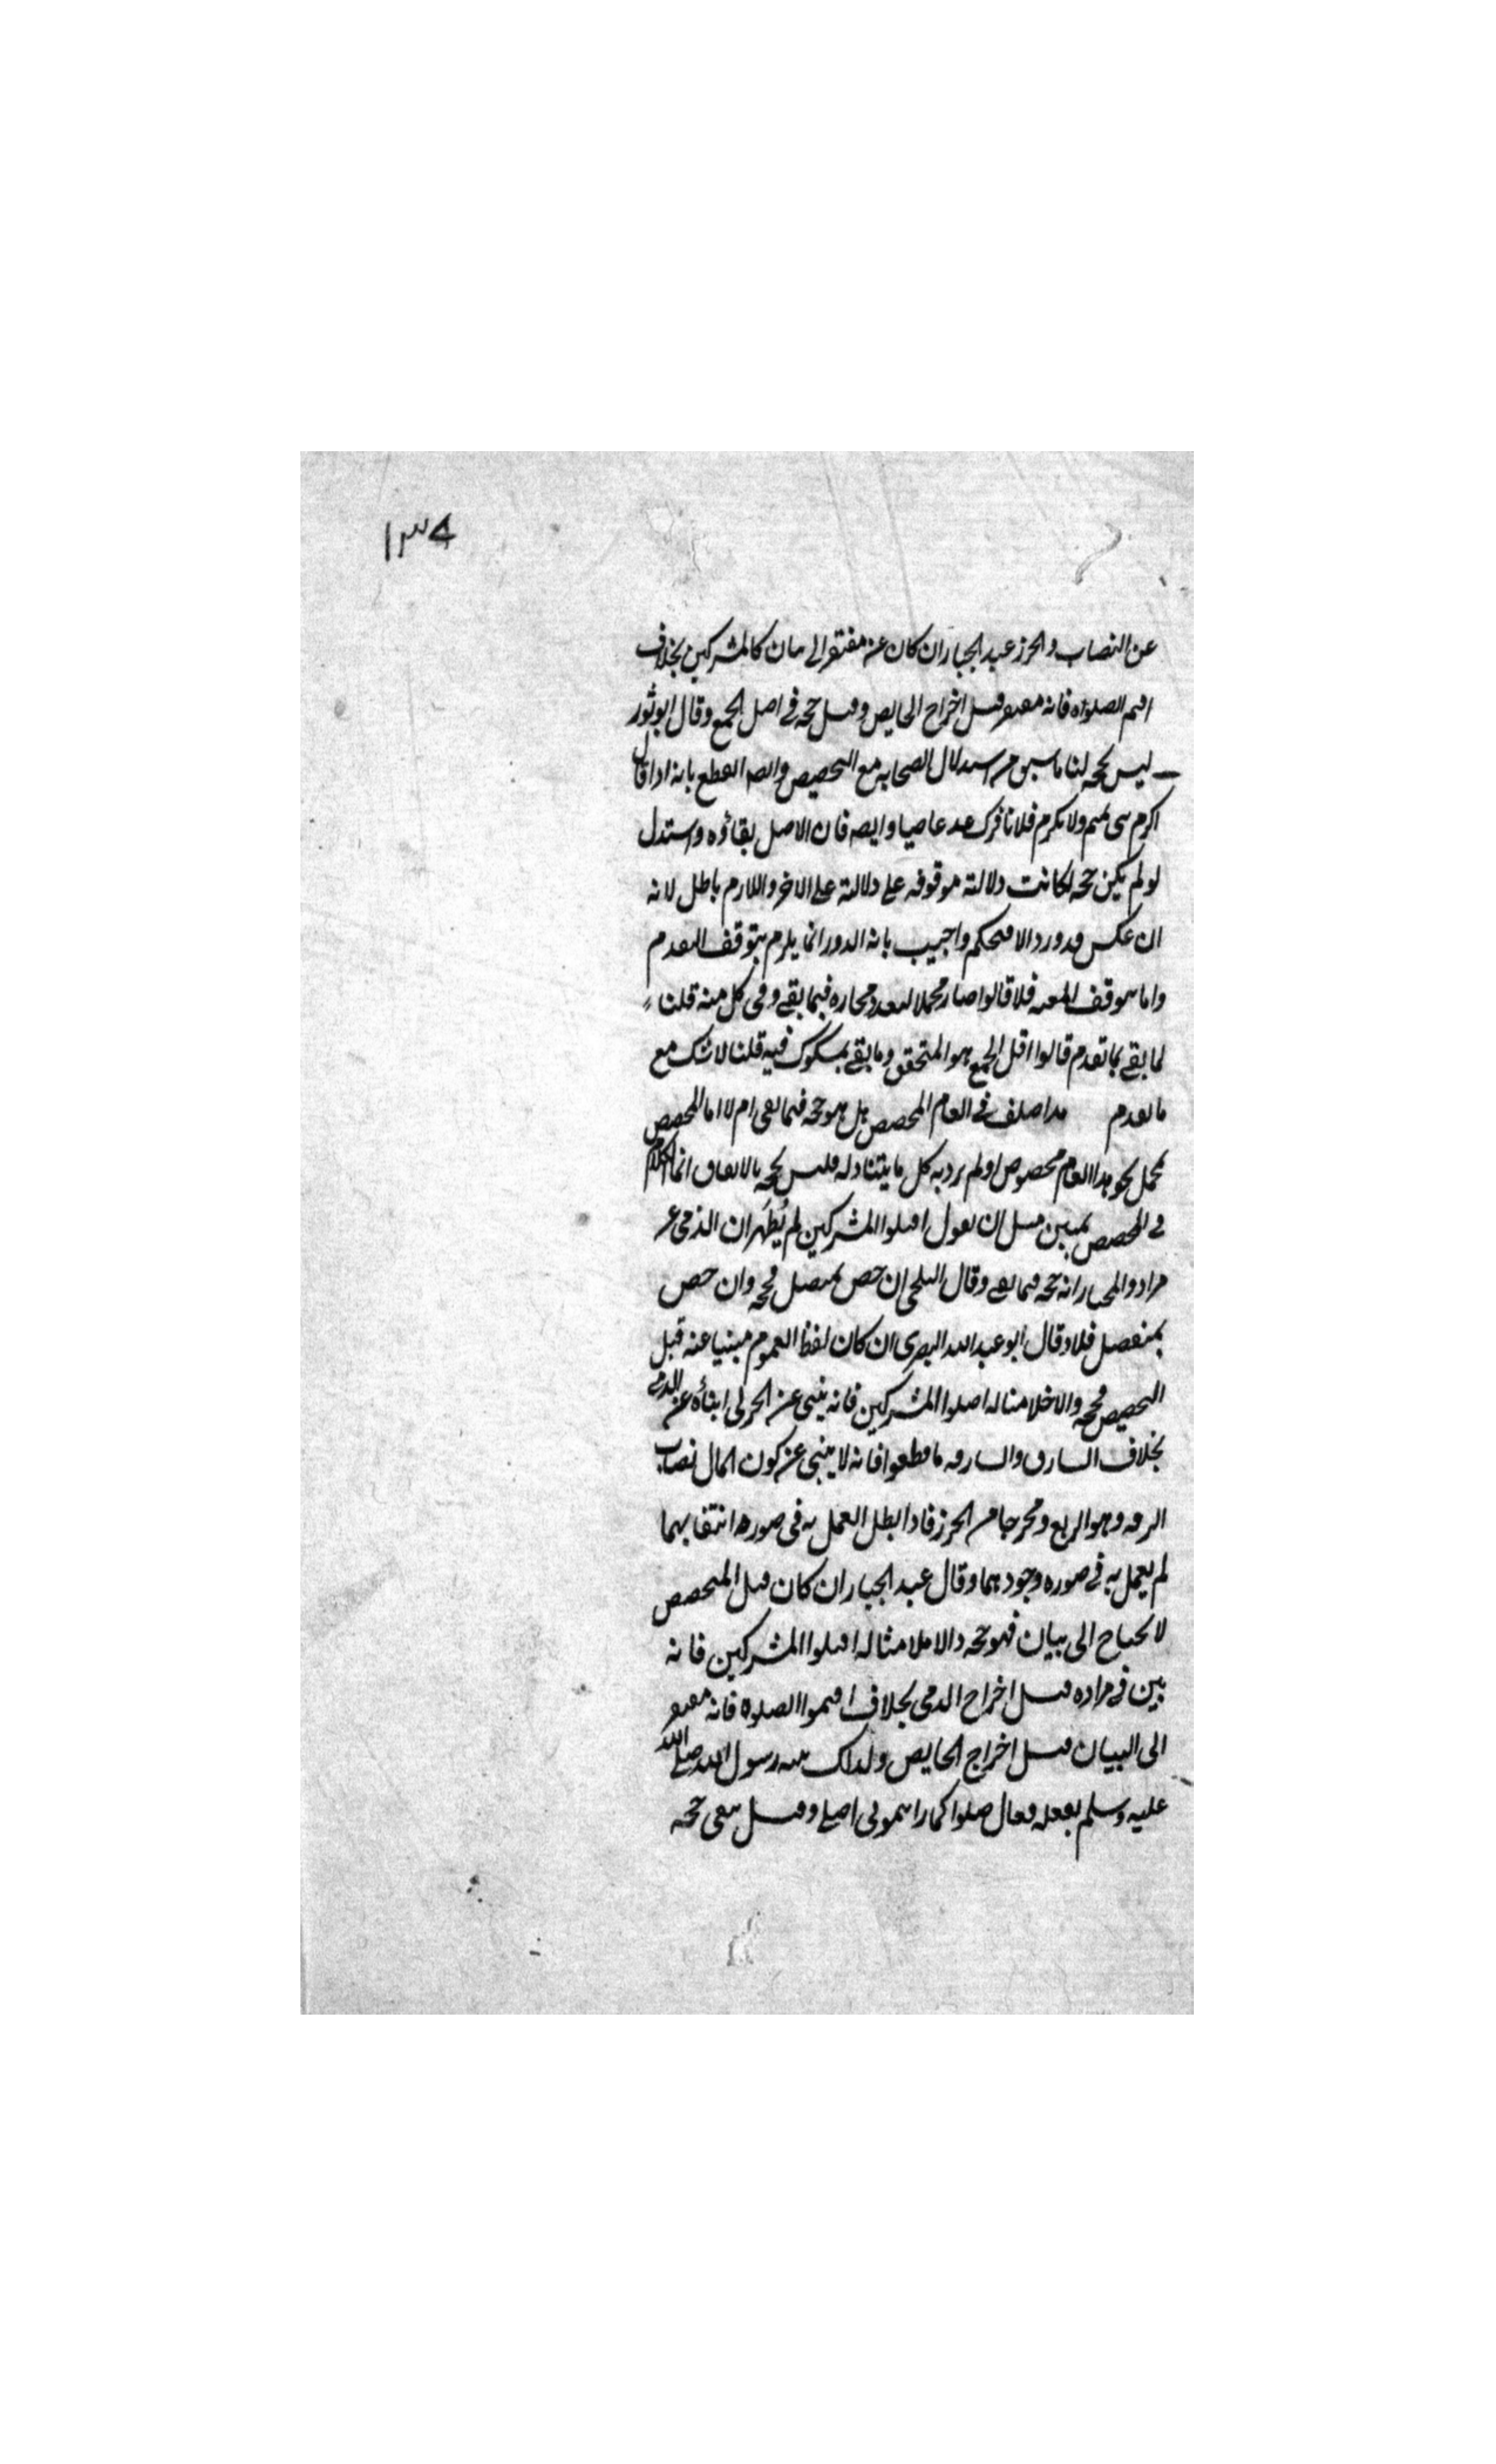 ١٣٤
عن النصاب والحرز عبد الجبار ان كان غير مفتقر الى بيان كالمشركين بخلاف
اقيموا الصلواه فانه مفتقر قبل اخراج الحايض وقيل حجه في اصل الجمع وقال ابو ثور
ليس بحجه لنا ما سبق من استدلال الصحابه مع التخصيص وايضا القطع بانه اذا قال
اكرم بني تميم ولا تكرم فلانا فترك عد عاصيا وايضا فان الاصل بقاؤه واستدل
لو لم يكن حجه لكانت دلالته موقوفه على دلالته على الاخر واللازم باطل لانه
ان عكس فدور والا فتحكم واجيب بانه الدور انما يلزم بتوقف التقدم
واما بتوقف المعيه فلا قالوا صار مجملا لتعدد مجازه فيما بقي وفي كل منه قلنا
لما بقي بما تقدم قالوا اقل الجمع هو المتحقق وما بقي مشكوك فيه قلنا لا شك مع
ما تقدم قد اختلف في العام المخصص هل هو حجه فيما بقي ام لا اما المخصص
بمجمل نحو هذا العام مخصوص او لم يرد به كل ما يتناوله فليس بحجه بالاتفاق انما الكلام
في المخصص بمبين مثل ان يقول اقتلوا المشركين ثم يظهر ان الذمي غير
مراد والمختار انه حجه فيما بقي وقال البلخي ان خص بمتصل فحجه وان خص
بمنفصل فلا وقال ابو عبد الله البصري ان كان لفظ العموم مبنيا عنه قبل
التخصيص فحجه والا فلا مثاله اقتلوا المشركين فانه ينبي عن الحربي انباؤه عن الذمي
بخلاف السارق والسارقه فاقطعوا فانه لا ينبي عن كون المال نصاب
السرقه وهو الربع ومخرجا من الحرز فاذا بطل العمل به في صوره انتفايهما
لم يعمل به في صوره وجودهما وقال عبد الجبار ان كان قبل التخصيص
لا يحتاج الى بيان فهو حجه والا فلا مثاله اقتلوا المشركين فانه
بين في مراده قبل اخراج الذمي بخلاف اقيموا الصلوه فانه مفتقر
الى البيان قبل اخراج الحايض ولذلك بينه رسول الله صلى الله
عليه وسلم بفعله فقال صلوا كما رايتموني اصلي وقيل يبقى حجه